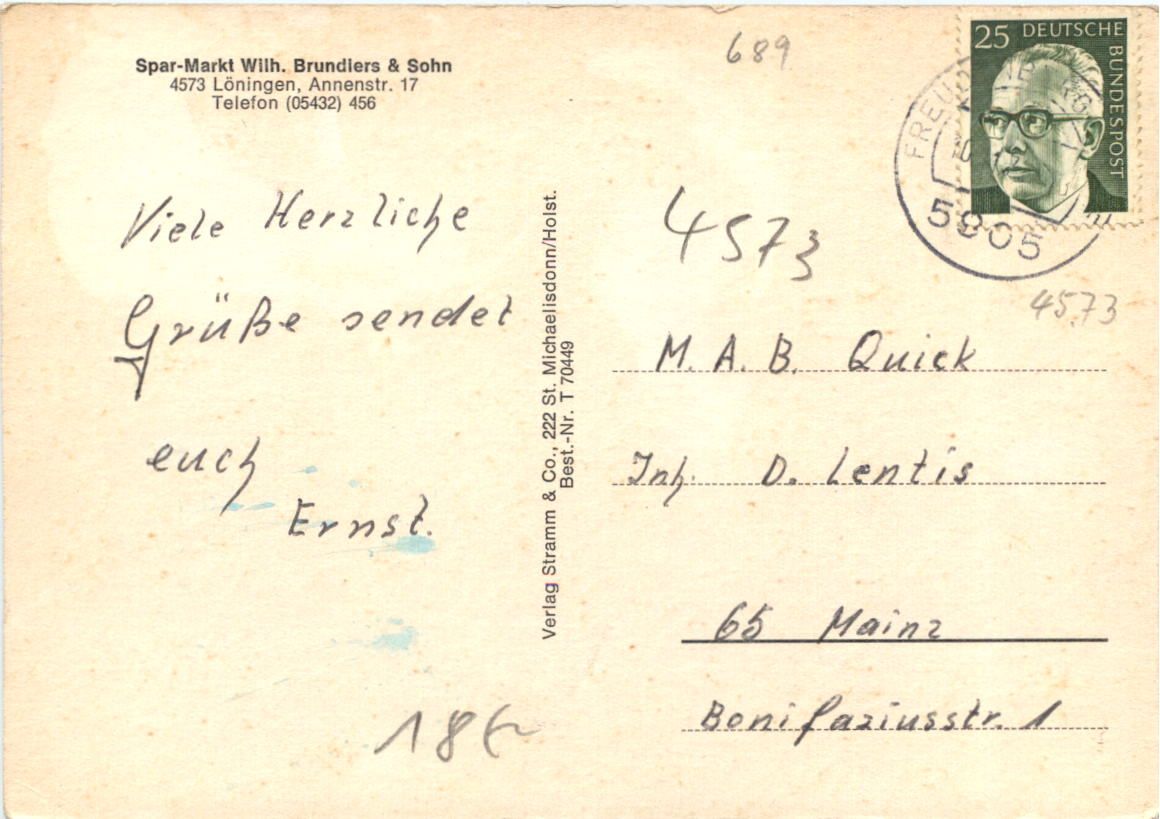 Spar-Markt Wilh. Brundiers & Sohn
4573 Löningen, Annenstr. 17
Telefon (05432) 456
689
25 DEUTSCHE BUNDESPOST
5905
Viele Herzliche
Grüße sendet
euch
Ernst.
18
Verlag Stramm & Co., 222 St. Michaelisdonn/Holst.
Best.-Nr. T 70449
4573
4573
M. A. B. Quick
Inh. D. Lentis
65 Mainz
Bonifaziusstr. 1